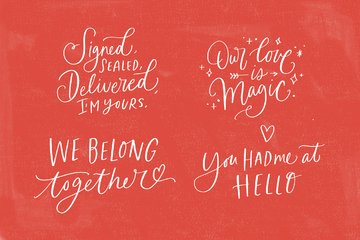 Signed,
SEALED,
Delivered,
I'M YOURS.
Our love
is
Magic
WE BELONG
together
You HAD me at
HELLO